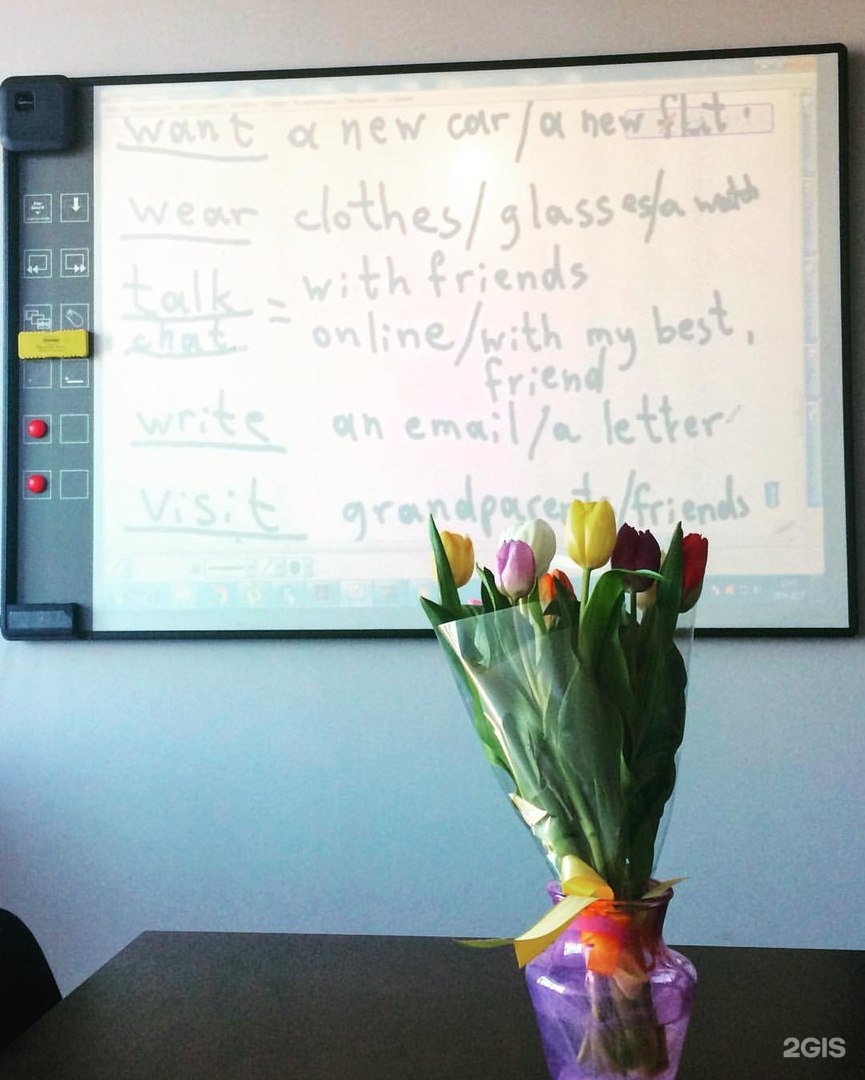 want a new car/a new flat.
wear clothes/glasses/a watch
talk = with friends
chat online/with my best
friend
write an email/a letter
visit grandparents/friends
2GIS